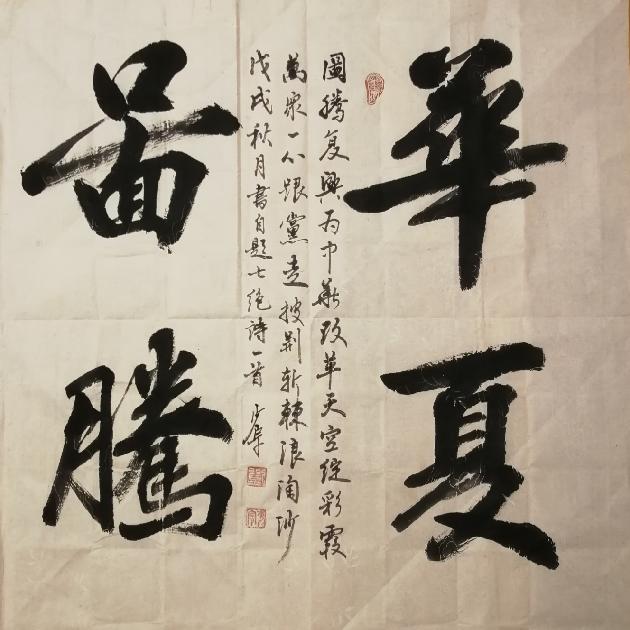 華夏
啚騰
圖騰复興为中華改革天空绽彩霞
萬眾一心跟黨走披荆斩棘浪淘沙
戊戌秋月書自题七绝詩一首